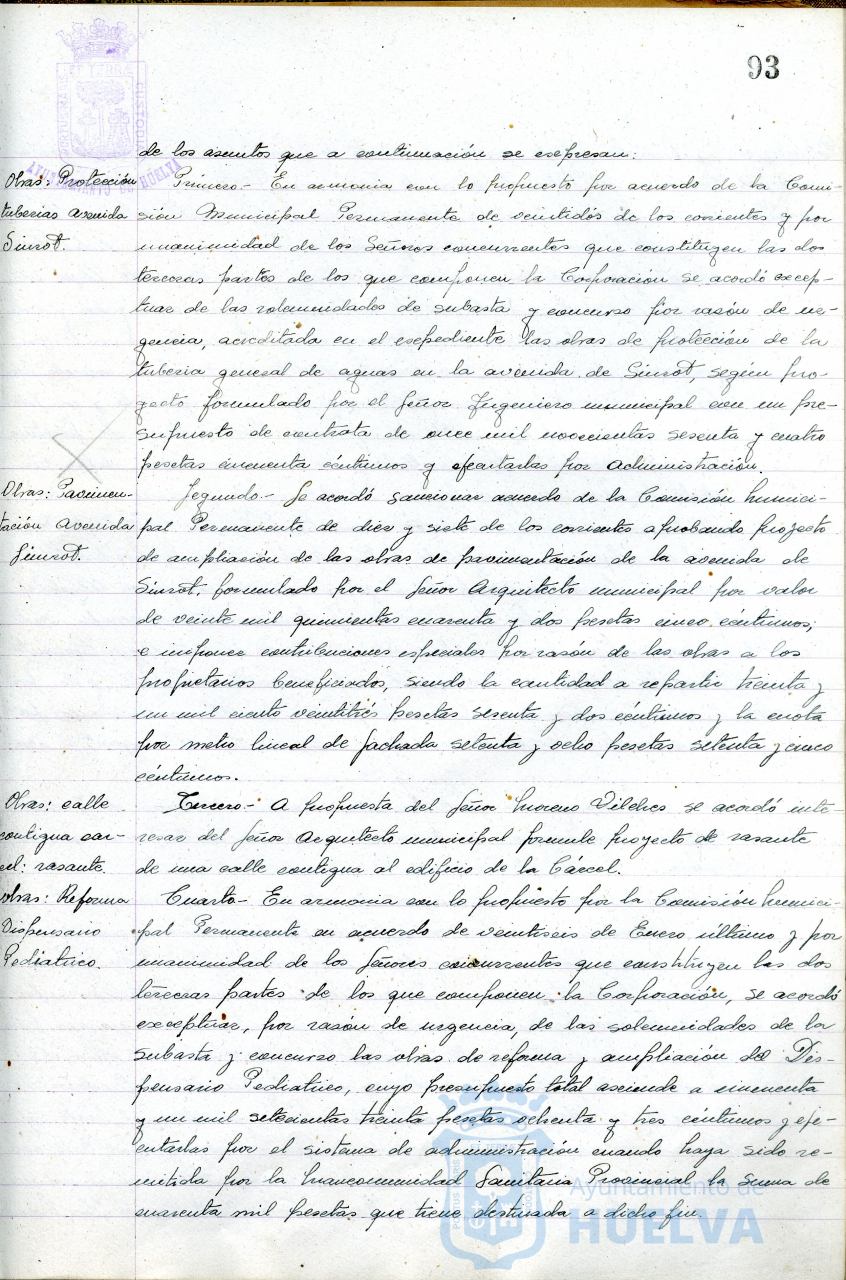 93
PORTUS MARIS ET TERRÆ CUSTODIA
AYUNTAMIENTO DE HUELVA
de los asuntos que a continuación se esepresan:
Obras: Protección
tuberias avenida
Sinrot.
Primero.- En armonia con lo propuesto por acuerdo de la Comi-
sión Municipal Permanente de veintidós de los corrientes y por
unanimidad de los Señores concurrentes que constituyen las dos
terceras partes de los que componen la Corporación se acordó excep-
tuar de las solemnidades de subasta y concurso por rasón de ur-
gencia, acreditada en el esepediente las obras de protección de la
tuberia general de aguas en la avenida de Sinrot, según pro-
yecto formulado por el Señor Ingeniero municipal con un pre-
supuesto de contrata de once mil novecientas sesenta y cuatro
pesetas cincuenta céntimos y ejecutarlas por administración.
Obras: Pavimen-
tación avenida
Sinrot.
Segundo.- Se acordó sancionar acuerdo de la Comisión Munici-
pal Permanente de diez y siete de los corrientes aprobando proyecto
de ampliación de las obras de pavimentación de la avenida de
Sinrot, formulado por el Señor Arquitecto municipal por valor
de veinte mil quinientas cuarenta y dos pesetas cinco céntimos;
e imponer contribuciones especiales por rasón de las obras a los
propietarios beneficiados, siendo la cantidad a repartir treinta y
un mil ciento veintitrés pesetas sesenta y dos céntimos y la cuota
por metro lineal de fachada setenta y ocho pesetas setenta y cinco
céntimos.
Obras: calle
contigua car-
cel: rasante.
Tercero.- A propuesta del Señor Moreno Vilches se acordó inte-
resar del Señor Arquitecto municipal formule proyecto de rasante
de una calle contigua al edificio de la Cárcel.
Obras: Reforma
Dispensario
Pediatrico.
Cuarto.- En armonia con lo propuesto por la Comisión Munici-
pal Permanente en acuerdo de veintiseis de Enero último y por
unanimidad de los Señores concurrentes que constituyen las dos
terceras partes de los que componen la Corporación, se acordó
exceptuar, por rasón de urgencia, de las solemnidades de la
subasta y concurso las obras de reforma y ampliación del Dis-
pensario Pediatrico, cuyo presupuesto total asciende a cincuenta
y un mil setecientas treinta pesetas ochenta y tres céntimos y eje-
cutarlas por el sistema de administración cuando haya sido re-
mitida por la Mancomunidad Sanitaria Provincial la suma de
cuarenta mil pesetas que tiene destinada a dicho fin.
Ayuntamiento de
HUELVA